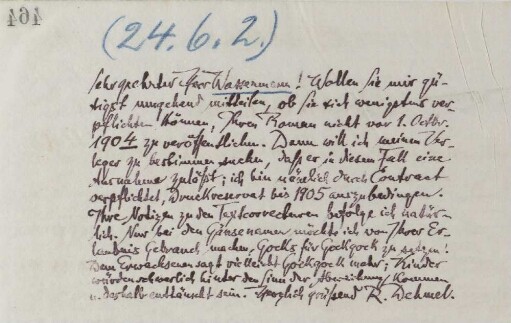 464
(24.6.2.)
Sehr geehrter Herr Wassermann! Wollen Sie mir gü-
tigst umgehend mitteilen, ob Sie sich wenigstens ver-
pflichten können, Ihren Roman nicht vor 1. Octbr.
1904 zu veröffentlichen. Dann will ich meinen Ver-
leger zu bestimmen suchen, daß er in diesem Fall eine
Ausnahme zuläßt; ich bin nämlich durch Contract
verpflichtet, Druckreservat bis 1905 auszubedingen.
Ihre Notizen zu den Textcorrecturen befolge ich natür-
lich. Nur bei den Gänsenamen möchte ich von Ihrer Er-
laubnis Gebrauch machen, Gocks für Gockgock zu setzen!
Dem Erwachsenen sagt vielleicht Gockgock mehr; Kinder
würden schwerlich hinter den Sinn der Abweichung kommen
u. deshalb enttäuscht sein. Herzlich grüßend R. Dehmel.